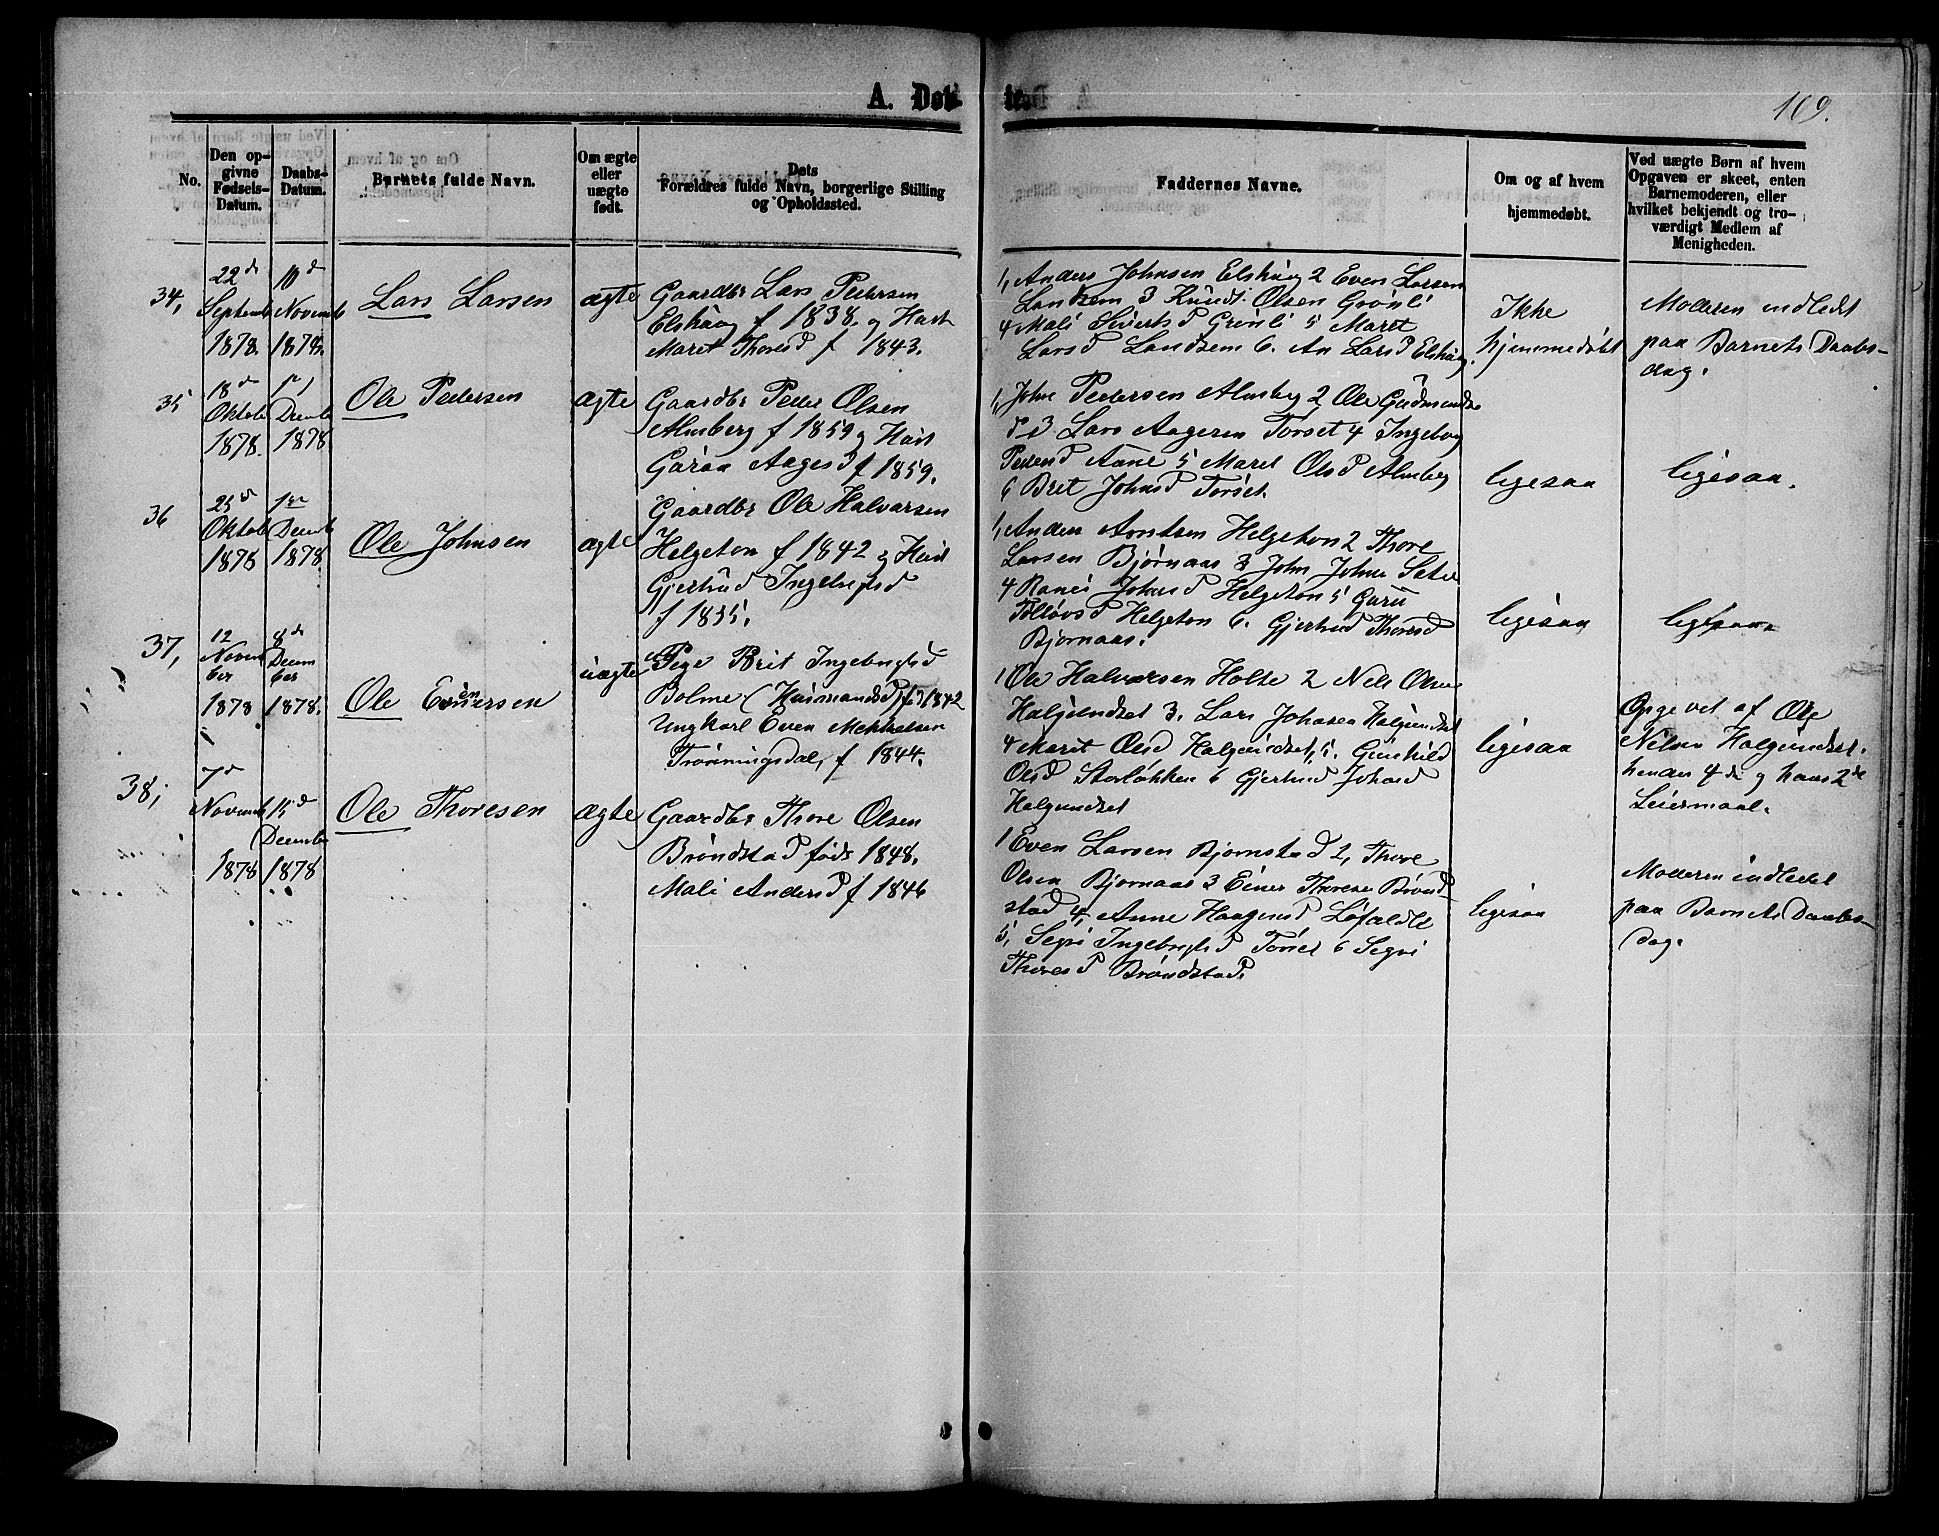 A. Døbte.
169.
No.
Den opgivne Fødsels-Datum.
Daabs-Datum.
Barnets fulde Navn.
Om ægte eller uægte født.
Dets Forældres fulde Navn, borgerlige Stilling og Opholdssted.
Faddernes Navne.
Om og af hvem hjemmedøbt.
Ved uægte Børn af hvem Opgaven er skeet, enten Barnemoderen, eller hvilket bekjendt og troværdigt Medlem af Menigheden.
34,
22d
Septemb
1878.
10d
Novemb
1878.
Lars Larsen
ægte
Gaardbr Lars Pedersen
Elshaug f 1838. og Hust
Maret Thoresd f 1843.
1, Anders Johnsen Elshaug 2 Even Larsen
Landsem 3 Knud Olsen Grønli
4 Mali Sivertsd Grønli 5 Maret
Larsd Landsem 6. An Larsd Elshaug.
Ikke
hjemmedøbt
Moderen indledet
paa Barnets Daabs-
dag.
35
18d
Oktob
1878.
Decmb
1878
Ole Pedersen
ægte
Gaardbr Peder Olsen
Almberg f 1859 og Hust
Guraa Aagesd f 1859.
1, John Pedersen Almberg 2 Ole Gudmundse
3 Lars Aagesen Torset 4 Ingeborg
Pedersd Aune 5 Maret Olsd Almberg
6 Bret Johnsd Torset.
ligesaa
ligesaa.
36
25d
Oktob
1878
1ste
Decmb
1878
Ole Johnsen
ægte
Gaardbr Ole Halvorsen
Helgeton f 1842 og Hust
Gjertrud Ingebrigtsd
f 1835.
1, Anders Arntsen Helgeton 2 Thore
Larsen Bjørnaas 3 John Johns Sæte
4 Ranei Johnsd Helgeton 5 Guru
Tølløvsd Helgeton 6. Gjertrud Thoresd
Bjørnaas.
ligesaa
ligesaa
37,
12
Novem
ber
1878
8de
Decem
ber
1878.
Ole Evensen
uægte
Pige Brit Ingebrigtsd
Bolme (Husmandsd) f 1842
Ungkarl Even Mikkelsen
Trønningsdal, f 1844.
1 Ole Halvorsen Holte 2 Nels Olsen
Halgundset 3. Lars Johnsen Halgundset
4 Marit Olsd Halgundset, 5. Gunhild
Olsd Storløkken 6 Gjertrud Johnsd
Halgundset
ligesaa
Opgevet af Ole
Nelsen Halgundset.
hendes 4de og hans 2de
Leiermaal.
38,
7d
Novemb
1878
15d
Decembr
1878
Ole Thoresen
ægte
Gaardbr Thore Olsen
Brøndstad føds 1848.
Mali Andersd f 1846
1 Even Larsen Bjørnstad 2, Thore
Olsen Bjørnaas 3 Einer Thorese Brønd
stad 4, Anne Haagensd Løfaldle
5, Segri Ingebrigtsd Torset 6 Segri
Thoresd Brøndstad.
ligesaa
Moderen indledet
paa Barnets Daabs-
dag.